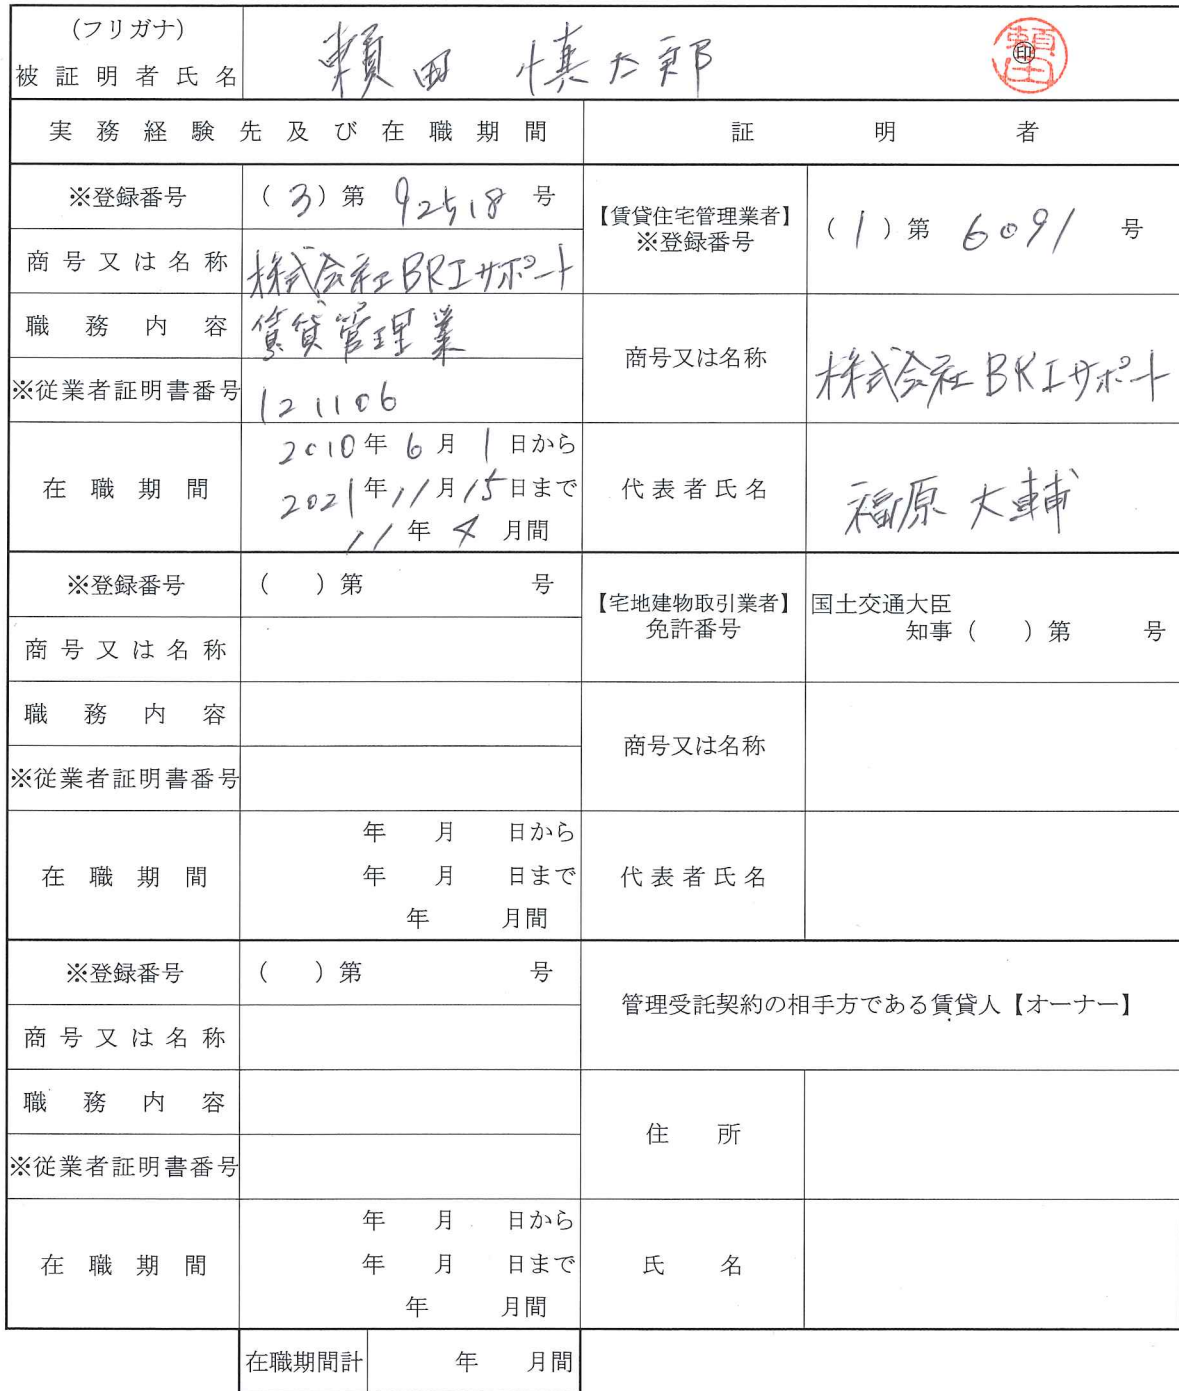 (フリガナ)
被証明者氏名 頼田 慎太郎 ㊞ 頼田
実務経験先及び在職期間 証明者
※登録番号 (3)第 92518 号
【賃貸住宅管理業者】
※登録番号 (1)第 6091 号
商号又は名称 株式会社BRIサポート
職務内容 賃貸管理業
商号又は名称 株式会社BRIサポート
※従業者証明書番号 121106
在職期間
2010年6月1日から
2021年11月15日まで
11年 月間
代表者氏名 福原 大輔
※登録番号 ( )第 号
【宅地建物取引業者】
免許番号
国土交通大臣
知事( )第 号
商号又は名称
職務内容
商号又は名称
※従業者証明書番号
在職期間
年 月 日から
年 月 日まで
年 月間
代表者氏名
※登録番号 ( )第 号
管理受託契約の相手方である賃貸人【オーナー】
商号又は名称
職務内容
住所
※従業者証明書番号
在職期間
年 月 日から
年 月 日まで
年 月間
氏名
在職期間計 年 月間